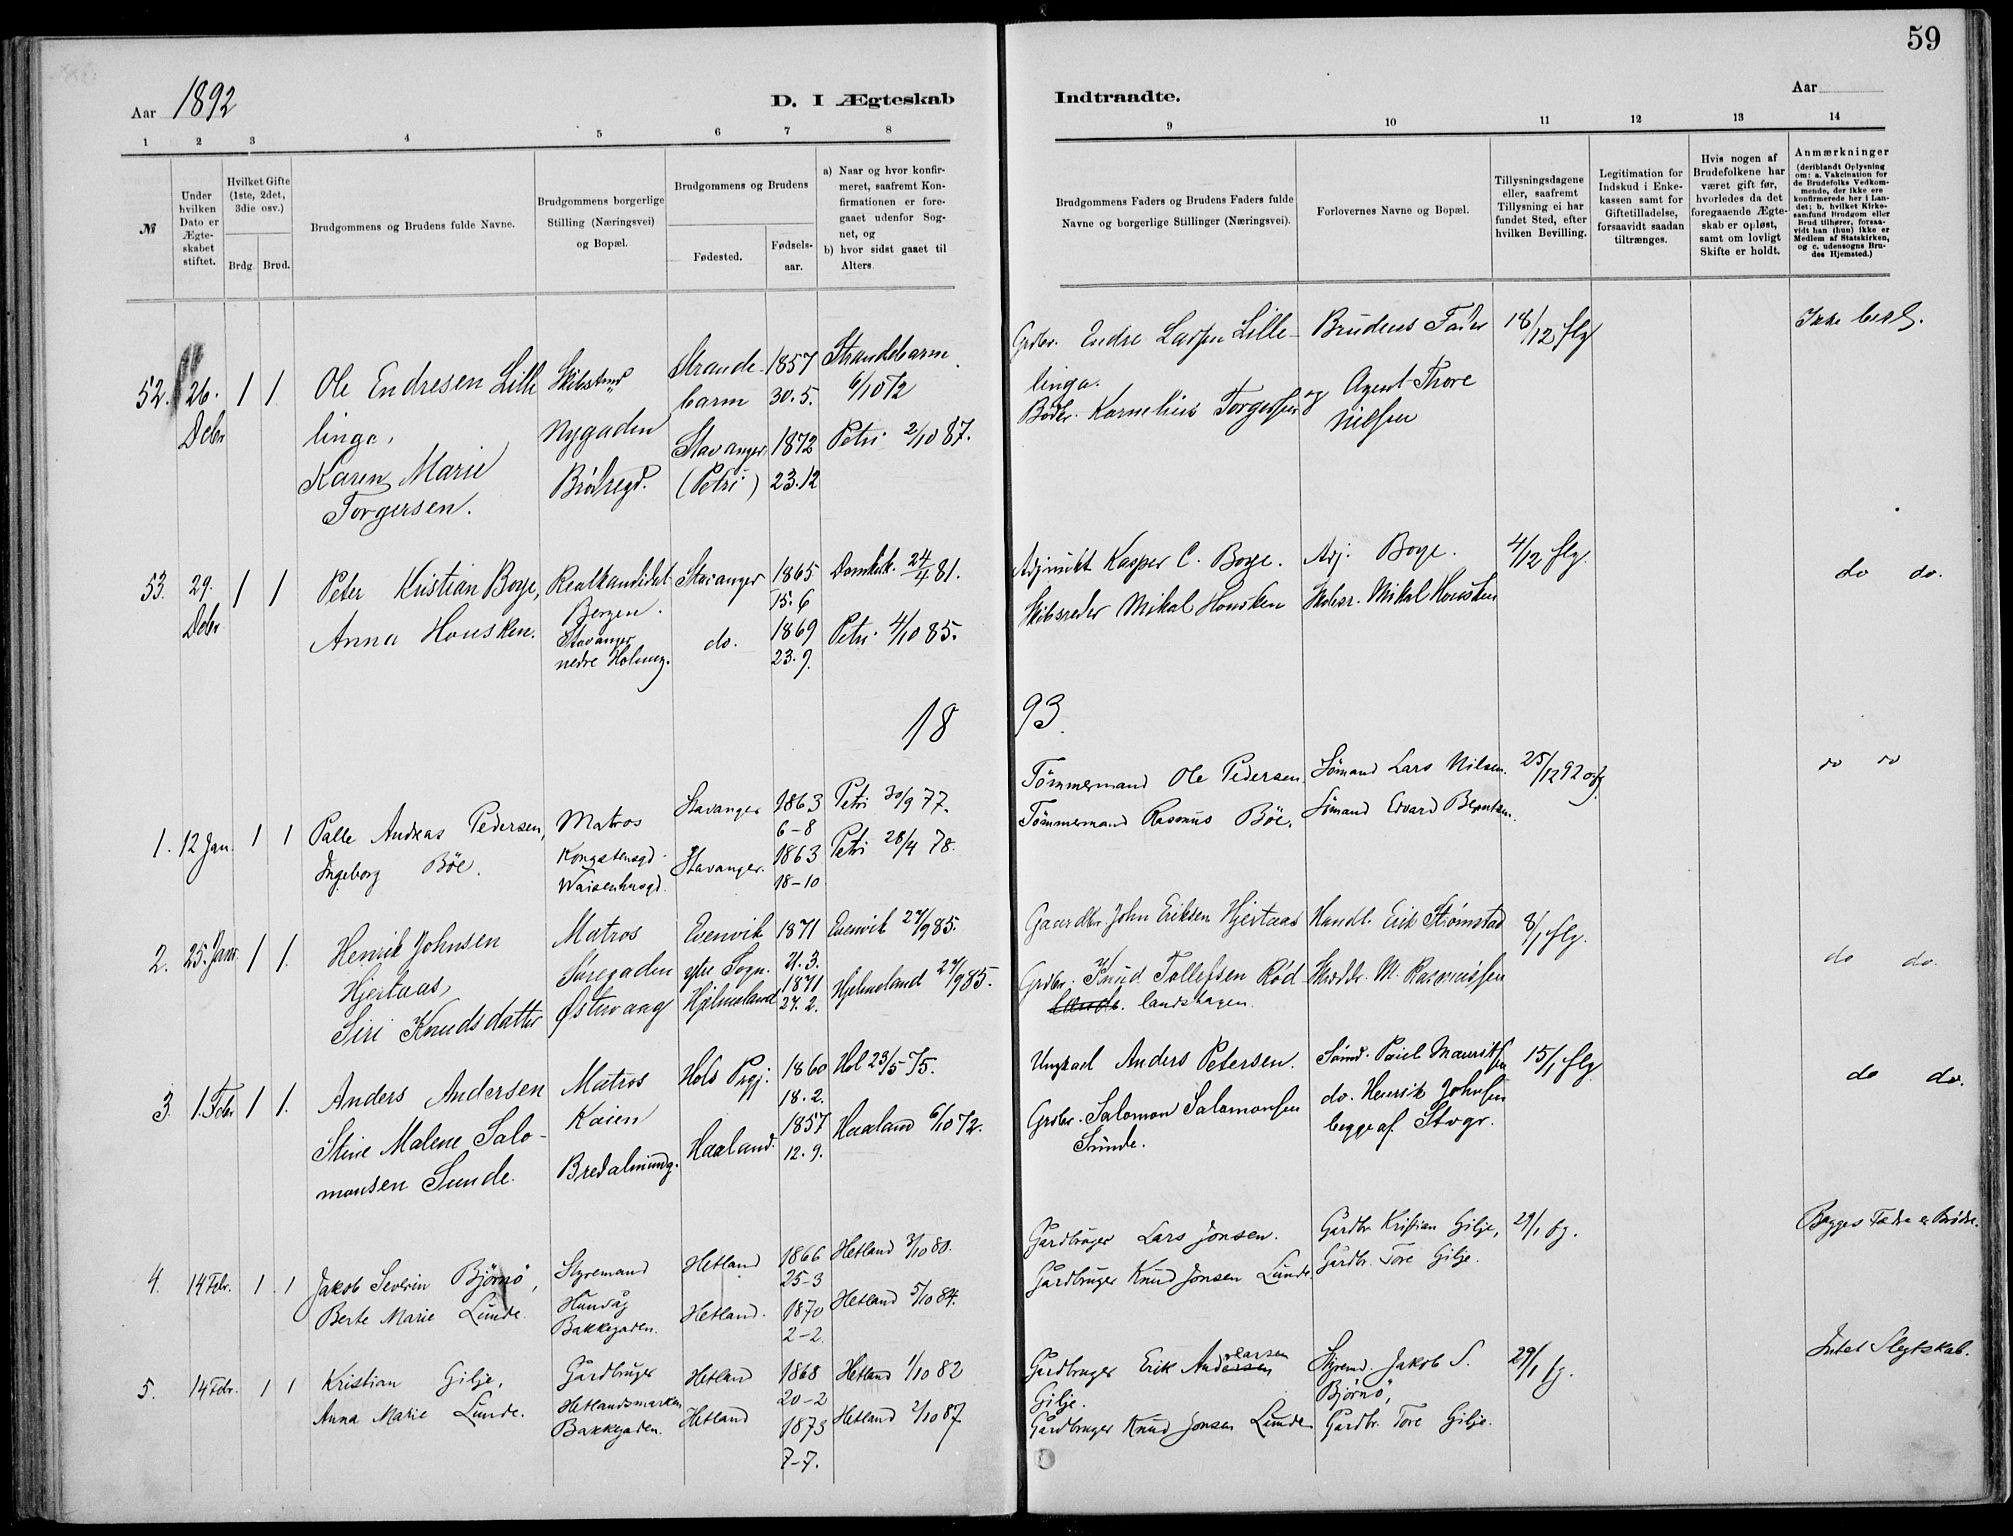 59
Aar 1892
D. I Ægteskab
Indtraadte.
Aar
1 2 3 4 5 6 7 8
9 10 11 12 13 14
№
Under hvilken Dato er Ægteskabet stiftet.
Hvilket Gifte (1ste, 2det, 3die osv.)
Brdg. Brud.
Brudgommens og Brudens fulde Navne.
Brudgommens borgerlige Stilling (Næringsvei) og Bopæl.
Brudgommens og Brudens
Fødested.
Fødselsaar.
a) Naar og hvor konfirmeret, saafremt Konfirmationen er foregaaet udenfor Sognet, og
b) hvor sidst gaaet til Alters.
Brudgommens Faders og Brudens Faders fulde Navne og borgerlige Stillinger (Næringsvei).
Forlovernes Navne og Bopæl.
Tillysningsdagene eller, saafremt Tillysning ei har fundet Sted, efter hvilken Bevilling.
Legitimation for Indskud i Enkekassen samt for Giftetilladelse, forsaavidt saadan tiltrænges.
Hvis nogen af Brudefolkene har været gift før, hvorledes da det foregaaende Ægteskab er opløst, samt om lovligt Skifte er holdt.
Anmærkninger (deriblandt Oplysning om: a. Vakcination for de Brudefolks Vedkommende, der ikke ere konfirmerede her i Landet; b. hvilket Kirkesamfund Brudgom eller Brud tilhører, forsaavidt han (hun) ikke er Medlem af Statskirken, og c. udensogns Brudes Hjemsted.)
52. 26. Debr 1 1.
Ole Endresen Lille
linga,
Karen Marie
Torgersen.
Nygaden
Strande-
barm
Stavanger
(Petri)
1857
30.5.
1872
23.12
Strandebarm
6/10 72
Petri 2/10 87.
Grdbr. Endre Larsen Lille-
linga.
Kornelius Torgersen
Brudens Fader
og Agent Thore
Nilsen
18/12 flg
Ikke besl.
53. 29. Debr 1 1
Peter Kristian Boye,
Anna Housken.
Realkandidat
Bergen.
Stavanger
nedre Holmeg.
Stavanger
do.
1865
15.6
1869
23.9.
Domkirk. 24/4 81.
Petri 4/10 85.
Adjunkt Kasper C. Boye.
Skibsreder Mikal Housken
Adj. Boye.
Skibsr. Mikal Housken
4/12 flg.
do do.
18 93.
1. 12 Jan. 1 1
Palle Andreas Pedersen,
Ingeborg Böe.
Matros
Kongstensgd.
Waisenhusgd.
Stavanger
Stavanger.
1863
6-8
1863
18-10
Petri 30/9 77.
Petri 28/4 78.
Tömmermand Ole Pedersen.
Tömmermand Rasmus Böe.
Sömand Lars Nilsen.
Sömand Edvard Berntsen.
25/12 92 ofg
do do
2. 25. Janr. 1 1.
Henrik Johnsen
Hjertaas,
Siri Knudsdatter
Matros
Søregaden
Østervaag
Evenvik
ytre Sogn.
Hjelmeland
1871
21.3.
1871
27.2.
Evenvik 27/9 85.
Hjelmeland 27/9 85.
Gaardbr. John Eriksen Hjertaas
Grdbr. Knud Tollefsen Rød-
landshagen.
Handl. Erik Strömstad
Skrædr. M. Rasmussen
8/1 flg.
do do.
3. 1. Febr 1 1.
Anders Andersen
Stine Malene Salo-
monsen Sunde.
Matros
Kaien
Bredalmindg.
Hols Prgj.
Haaland.
1860
18.2.
1857
12.9.
Hol 23/5 75.
Haaland 6/10 72.
Ungkarl Anders Petersen.
Grdbr. Salomon Salomonsen
Sunde.
Sömd. Poul Mauritsen
do. Henrik Johnsen
begge af Stvgr.
15/1 flg
do do.
4. 14 Febr. 1 1
Jakob Severin Björnö,
Berte Marie Lunde
Styremand
Hundåg
Bakkegaden.
Hetland
Hetland.
1866
25-3
1870
2-2.
Hetland 3/10 80.
Hetland 5/10 84.
Gardbruger Lars Jonsen.
Gardbruger Knud Jonsen Lunde.
Gardbr. Kristian Gilje,
Gardbr. Tore Gilje.
29/1 fg.
Begges Fædre er Brödre.
5. 14 Febr. 1 1
Kristian Gilje,
Anna Marie Lunde.
Gardbruger
Hetlandsmarken
Bakkegaden.
Hetland
Hetland
1868
20-2
1873
7-7.
Hetland 1/10 82
Hetland 2/10 87
Gardbruger Erik Andersen
Gilje.
Gardbruger Knud Jonsen Lunde
Styremd. Jakob S.
Björnö,
Gardbr. Tore Gilje.
29/1 fg.
Intet Slegtskab.